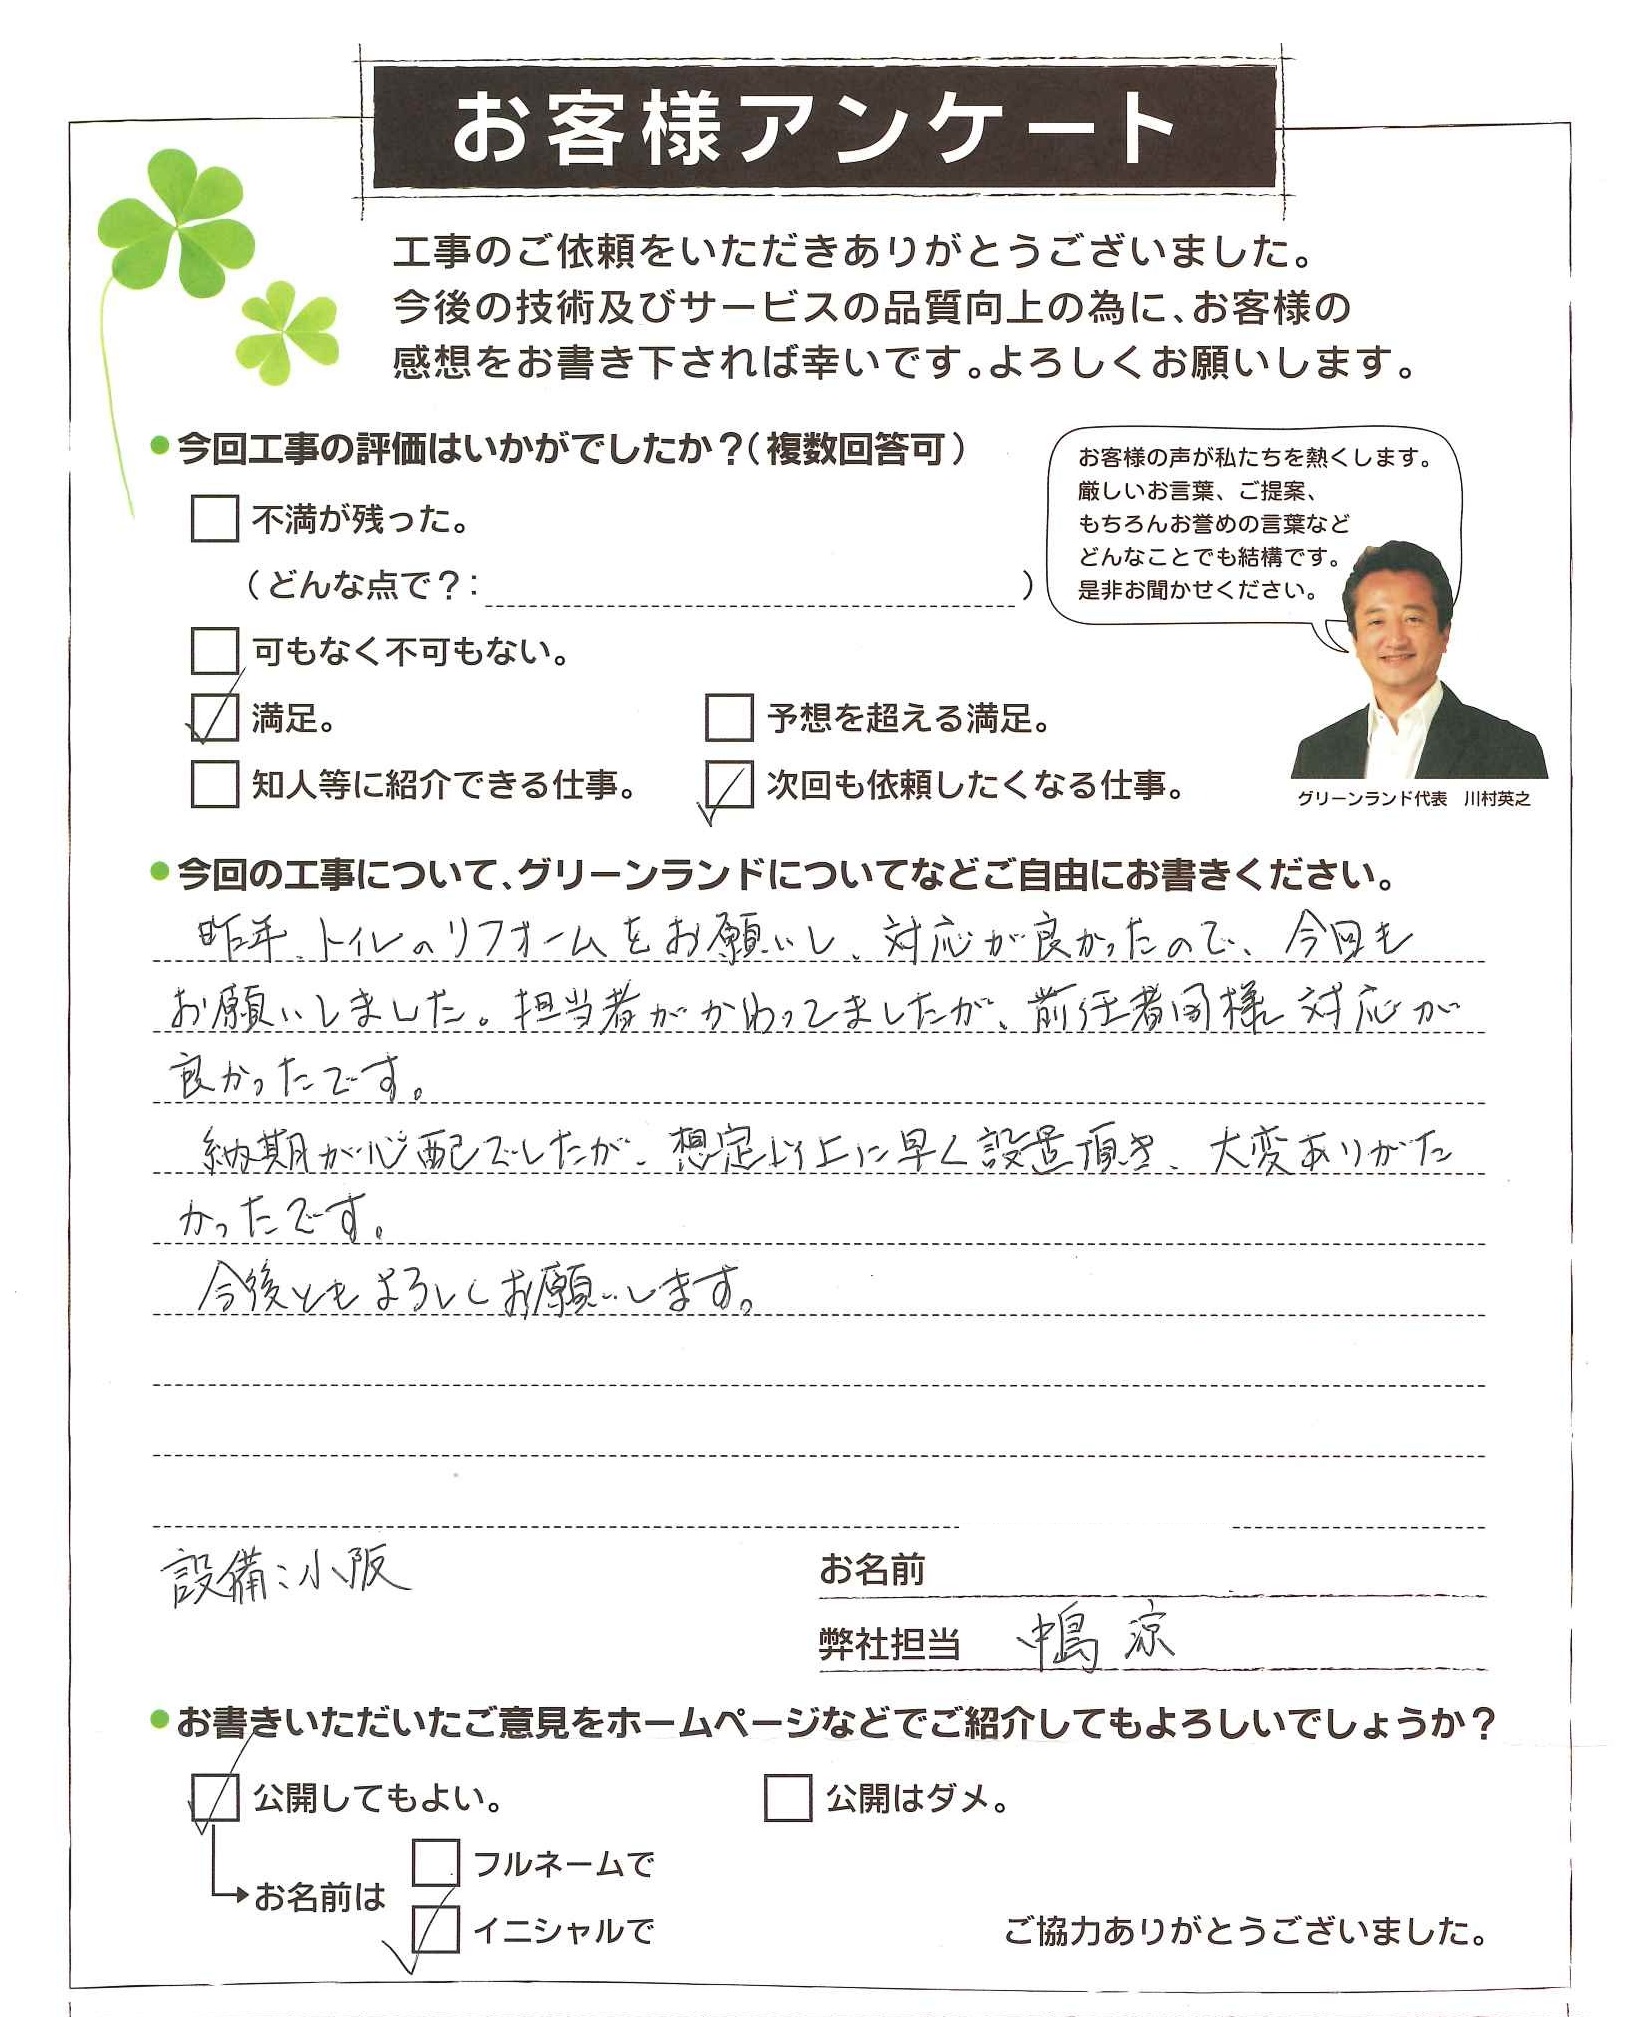 お客様アンケート
工事のご依頼をいただきありがとうございました。
今後の技術及びサービスの品質向上の為に、お客様の
感想をお書き下されば幸いです。よろしくお願いします。
●今回工事の評価はいかがでしたか？（複数回答可）
不満が残った。
（どんな点で？：　）
可もなく不可もない。
満足。
予想を超える満足。
知人等に紹介できる仕事。
次回も依頼したくなる仕事。
お客様の声が私たちを熱くします。
厳しいお言葉、ご提案、
もちろんお誉めの言葉など
どんなことでも結構です。
是非お聞かせください。
グリーンランド代表　川村英之
●今回の工事について、グリーンランドについてなどご自由にお書きください。
昨年、トイレのリフォームをお願いし、対応が良かったので、今回も
お願いしました。担当者がかわってましたが、前任者同様対応が
良かったです。
納期が心配でしたが、想定以上に早く設置頂き、大変ありがた
かったです。
今後ともよろしくお願いします。
設備：小阪
お名前
弊社担当　中嶋 涼
●お書きいただいたご意見をホームページなどでご紹介してもよろしいでしょうか？
公開してもよい。
公開はダメ。
お名前は
フルネームで
イニシャルで
ご協力ありがとうございました。